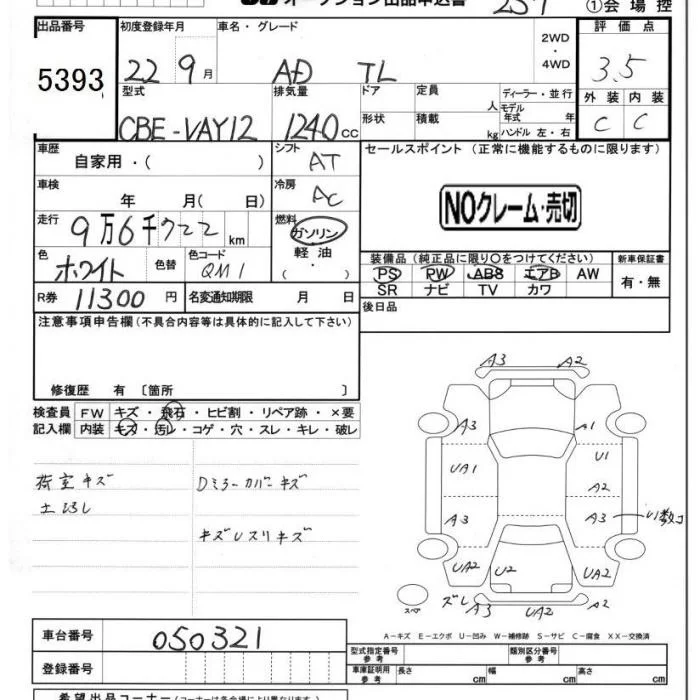 オークション出品申込書 ①会場控
出品番号 初度登録年月 車名・グレード 評価点
5393 22 9月 AD TL 2WD・4WD 3.5
型式 排気量 ドア 定員 ディーラー・並行 外装 内装
CBE-VAY12 1240cc 形状 積載 人 kg モデル年式 年 ハンドル 左・右 C C
車歴 自家用・( ) シフト AT セールスポイント (正常に機能するものに限ります)
車検 年 月( 日) 冷房 AC NOクレーム・売切
走行 9万6千722km 燃料 ガソリン
色 ホワイト 色替 色コード QM1 軽油 ・ ( ) 装備品 (純正品に限り〇をつけてください) 新車保証書
PS PW ABS エアB AW 有・無
R券 11300円 名変通知期限 月 日 SR ナビ TV カワ
注意事項申告欄(不具合内容等は具体的に記入して下さい) 後日品
修復歴 有 〔箇所 〕
検査員 FW キズ・飛石・ヒビ割・リペア跡・×要
記入欄 内装 キズ・汚レ・コゲ・穴・スレ・キレ・破レ
荷室キズ Dミラーカバーキズ
キズ
A3 A2
A3 A1
UA1 U1
A2
A3 A3 U1数コ
UA2 U2 UA2
スペア ズレ A3 UA2 A2
車台番号 050321
A-キズ E-エクボ U-凹み W-補修跡 S-サビ C-腐食 XX-交換済
登録番号 型式指定番号 参考 類別区分番号 参考
車庫証明用 参考 長さ cm 幅 cm 高さ cm
希望出品コーナー